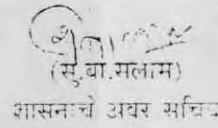 (सु.वा.सलाम)
शासनाचे अवर सचिव